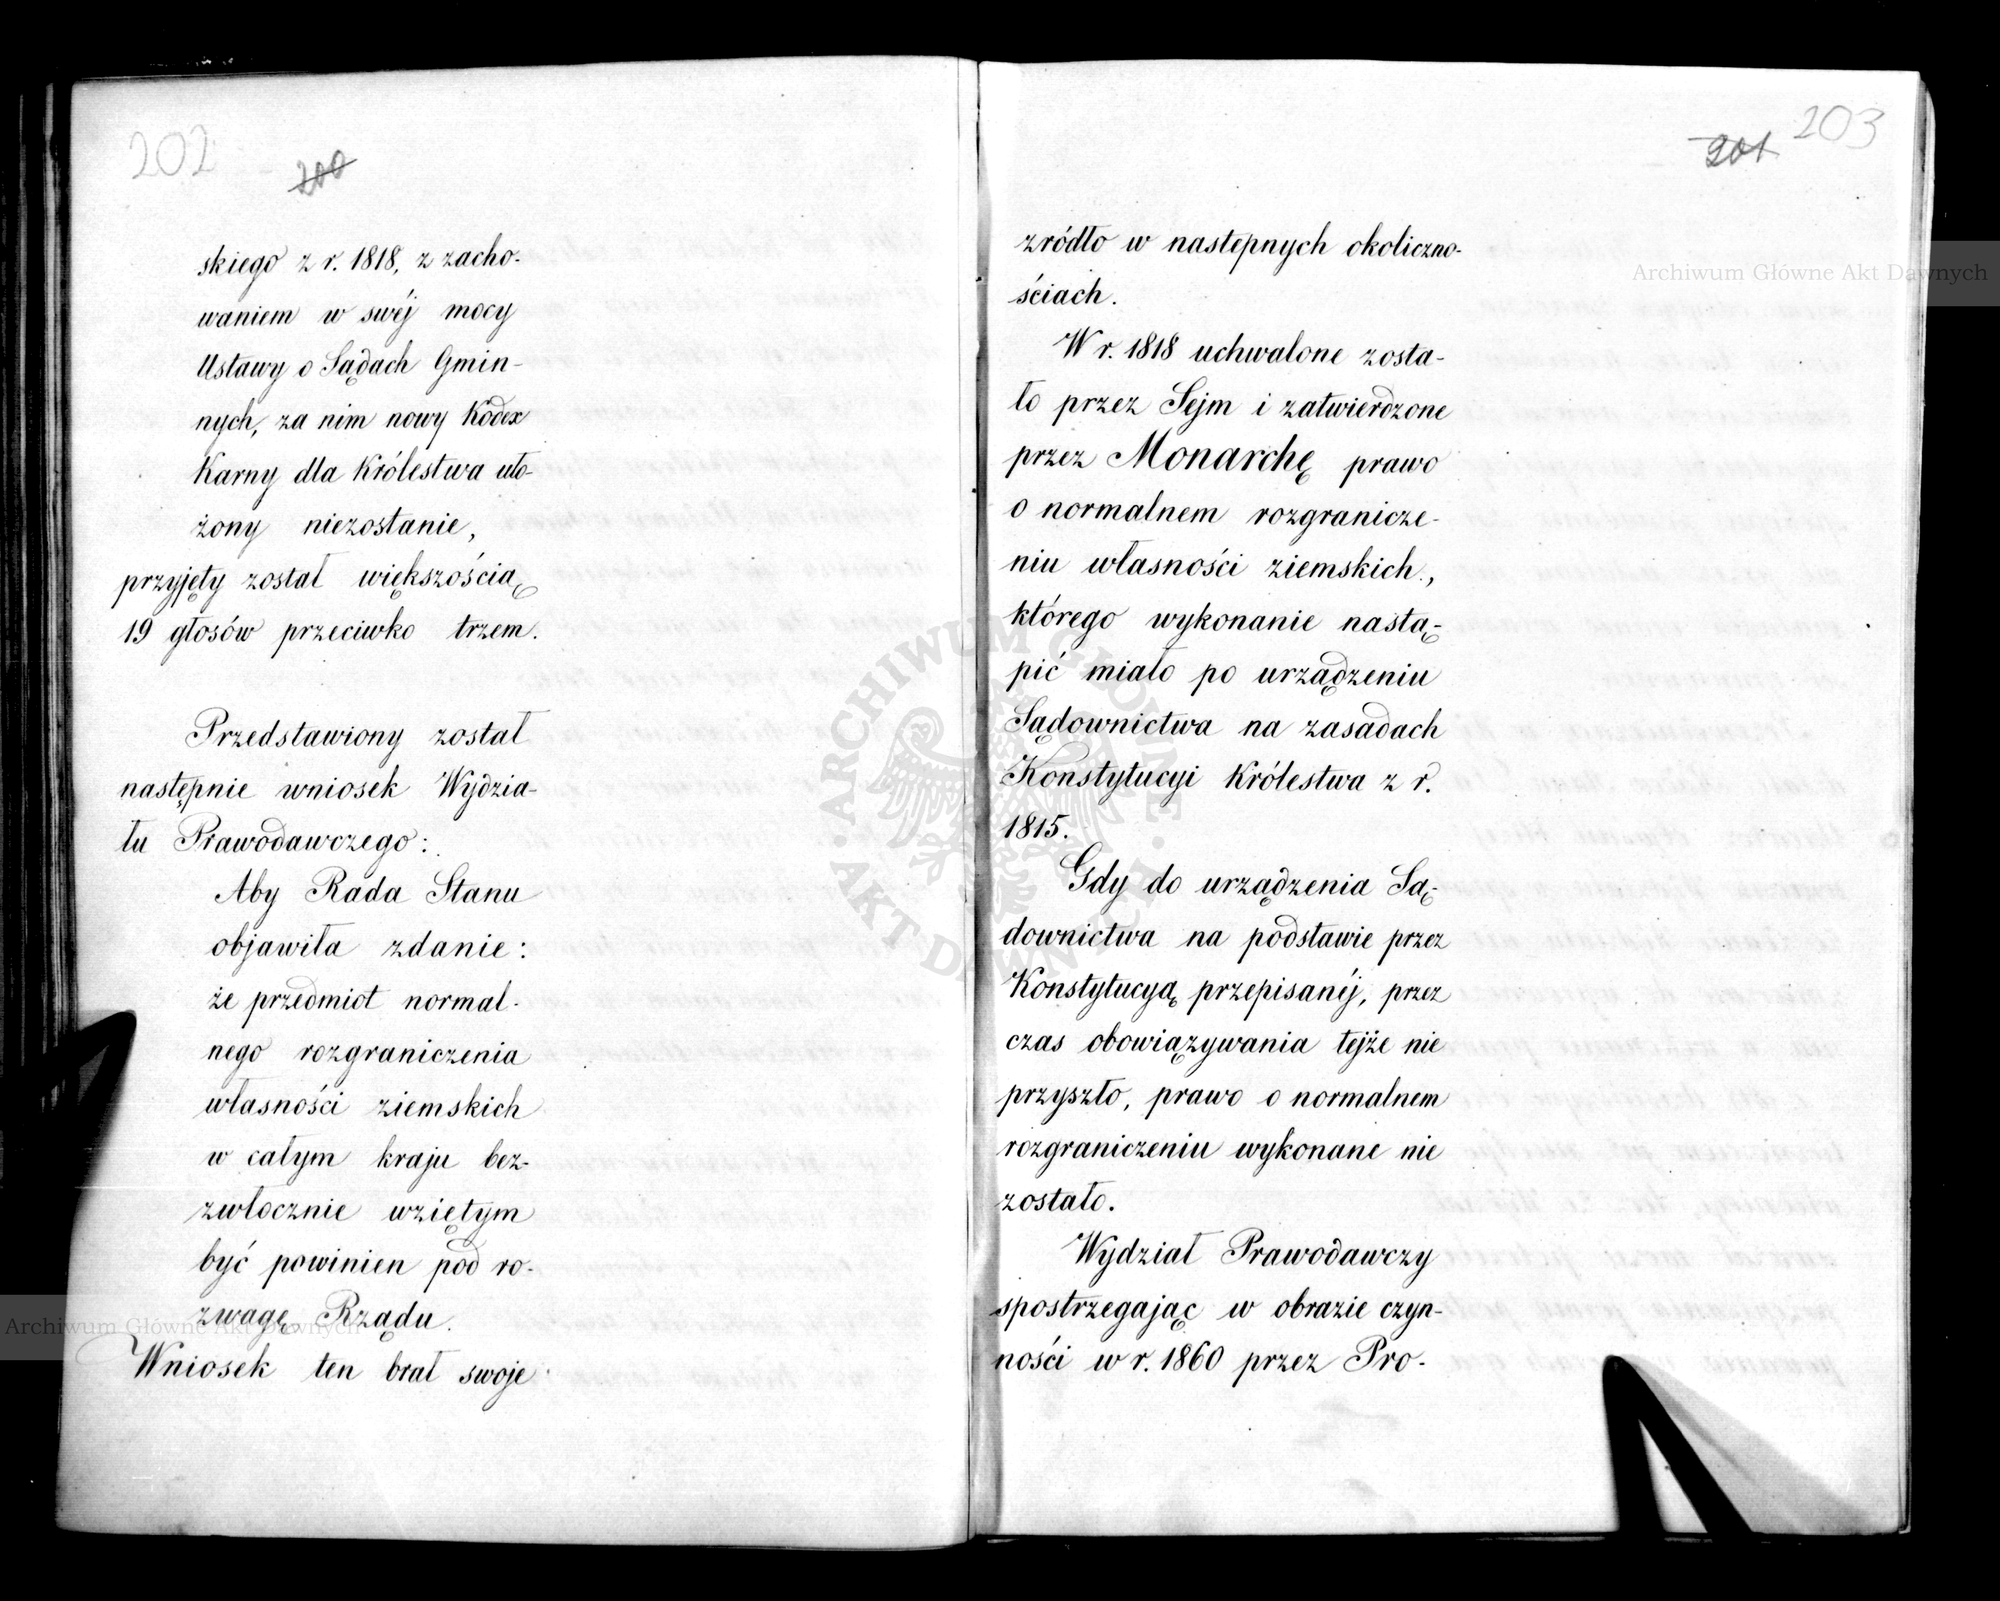 202
200
skiego z r. 1818, z zacho-
waniem w swéj mocy
Ustawy o Sądach Gmin-
nych, za nim nowy Kodex
Karny dla Królestwa uło-
żony niezostanie,
przyjęty został większością
19 głosów przeciwko trzem.
Przedstawiony został
następnie wniosek Wydzia-
łu Prawodawczego:
Aby Rada Stanu
objawiła zdanie:
że przedmiot normal-
nego rozgraniczenia
własności ziemskich
w całym kraju bez-
zwłocznie wziętym
być powinien pod ro-
zwagę Rządu.
Wniosek ten brał swoje
203
201
zródło w następnych okoliczno-
ściach.
W r. 1818 uchwalone zosta-
ło przez Sejm i zatwierdzone
przez Monarchę prawo
o normalnem rozgranicze-
niu własności ziemskich,
którego wykonanie nastą-
pić miało po urządzeniu
Sądownictwa na zasadach
Konstytucyi Królestwa z r.
1815.
Gdy do urządzenia Są-
downictwa na podstawie przez
Konstytucyą przepisanéj, przez
czas obowiązywania tejże nie
przyszło, prawo o normalnem
rozgraniczeniu wykonane nie
zostało.
Wydział Prawodawczy
spostrzegając w obrazie czyn-
ności w r. 1860 przez Pro-
Archiwum Główne Akt Dawnych
Archiwum Główne Akt Dawnych
ARCHIWUM GŁÓWNE AKT DAWNYCH